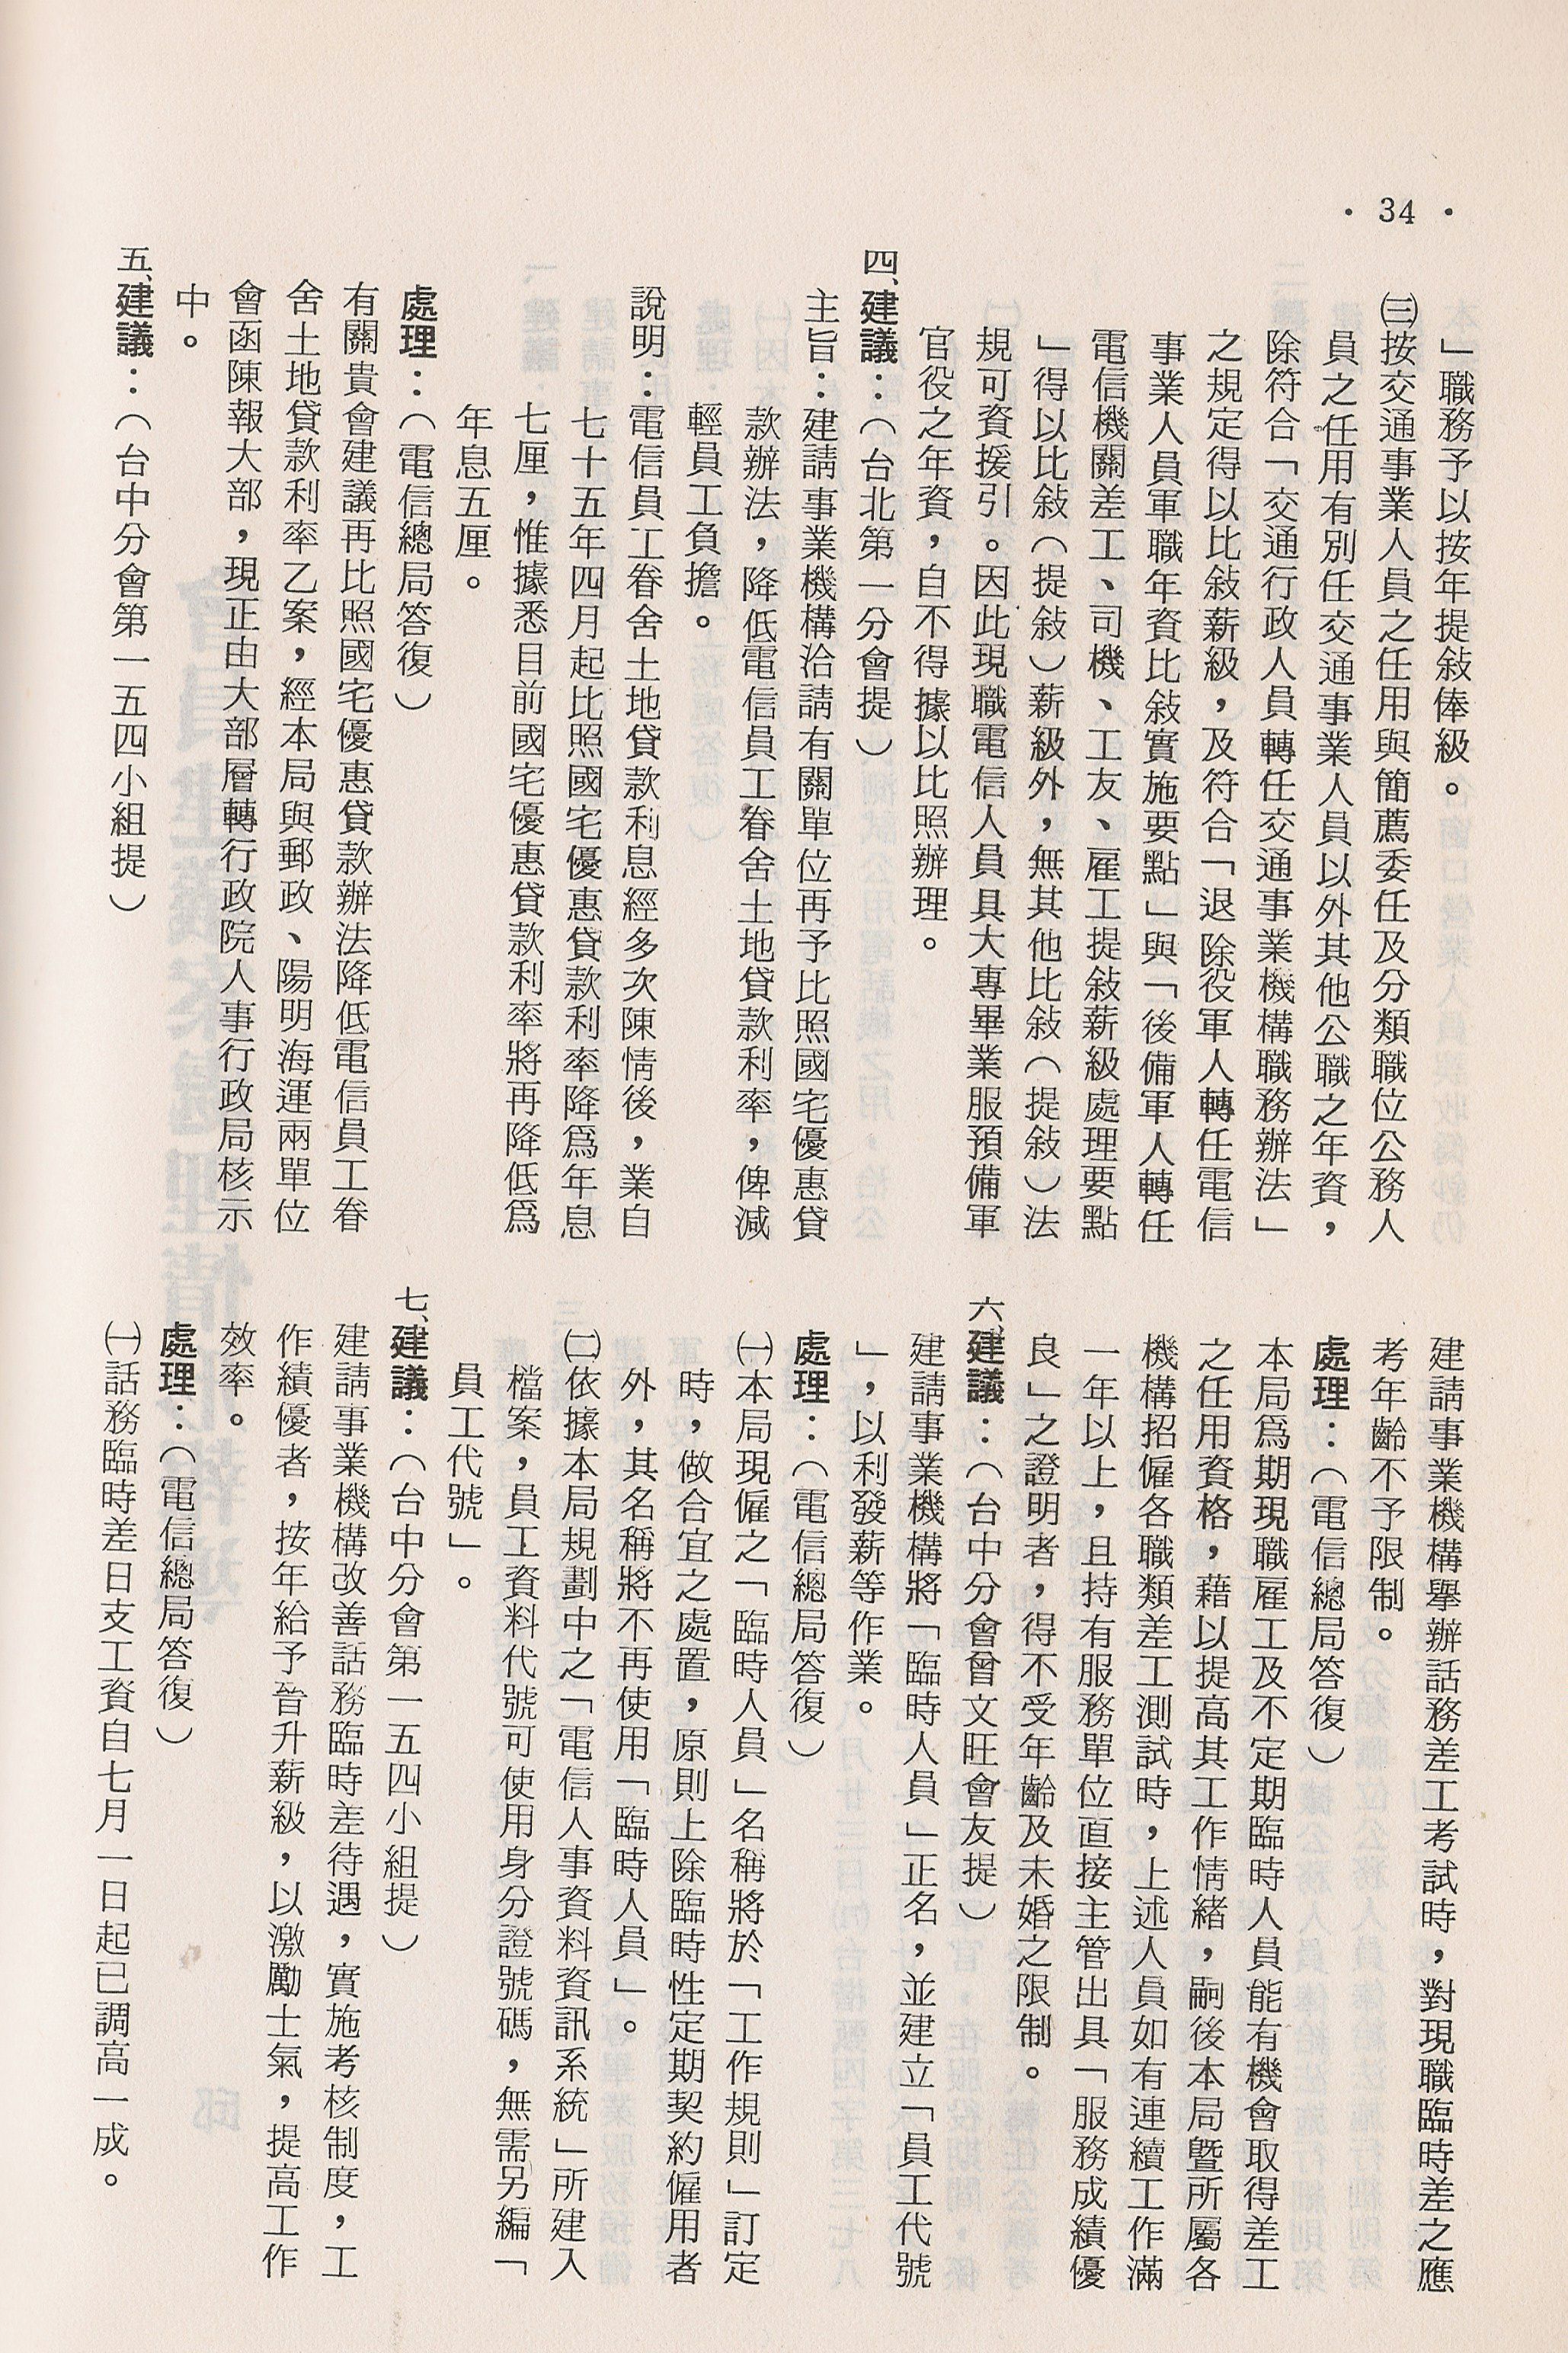 • 34 •
」職務予以按年提敍俸級。
㈢按交通事業人員之任用與簡薦委任及分類職位公務人
員之任用有別任交通事業人員以外其他公職之年資，
除符合「交通行政人員轉任交通事業機構職務辦法」
之規定得以比敍薪級，及符合「退除役軍人轉任電信
事業人員軍職年資比敍實施要點」與「後備軍人轉任
電信機關差工、司機、工友、雇工提敍薪級處理要點
」得以比敍（提敍）薪級外，無其他比敍（提敍）法
規可資援引。因此現職電信人員具大專畢業服預備軍
官役之年資，自不得據以比照辦理。
四、建議：（台北第一分會提）
主旨：建請事業機構洽請有關單位再予比照國宅優惠貸
款辦法，降低電信員工眷舍土地貸款利率，俾減
輕員工負擔。
說明：電信員工眷舍土地貸款利息經多次陳情後，業自
七十五年四月起比照國宅優惠貸款利率降爲年息
七厘，惟據悉目前國宅優惠貸款利率將再降低爲
年息五厘。
處理：（電信總局答復）
有關貴會建議再比照國宅優惠貸款辦法降低電信員工眷
舍土地貸款利率乙案，經本局與郵政、陽明海運兩單位
會函陳報大部，現正由大部層轉行政院人事行政局核示
中。
五、建議：（台中分會第一五四小組提）
建請事業機構舉辦話務差工考試時，對現職臨時差之應
考年齡不予限制。
處理：（電信總局答復）
本局爲期現職雇工及不定期臨時人員能有機會取得差工
之任用資格，藉以提高其工作情緒，嗣後本局暨所屬各
機構招僱各職類差工測試時，上述人員如有連續工作滿
一年以上，且持有服務單位直接主管出具「服務成績優
良」之證明者，得不受年齡及未婚之限制。
六、建議：（台中分會曾文旺會友提）
建請事業機構將「臨時人員」正名，並建立「員工代號
」，以利發薪等作業。
處理：（電信總局答復）
㈠本局現僱之「臨時人員」名稱將於「工作規則」訂定
時，做合宜之處置，原則上除臨時性定期契約僱用者
外，其名稱將不再使用「臨時人員」。
㈡依據本局規劃中之「電信人事資料資訊系統」所建入
檔案，員工資料代號可使用身分證號碼，無需另編「
員工代號」。
七、建議：（台中分會第一五四小組提）
建請事業機構改善話務臨時差待遇，實施考核制度，工
作績優者，按年給予晉升薪級，以激勵士氣，提高工作
效率。
處理：（電信總局答復）
㈠話務臨時差日支工資自七月一日起已調高一成。